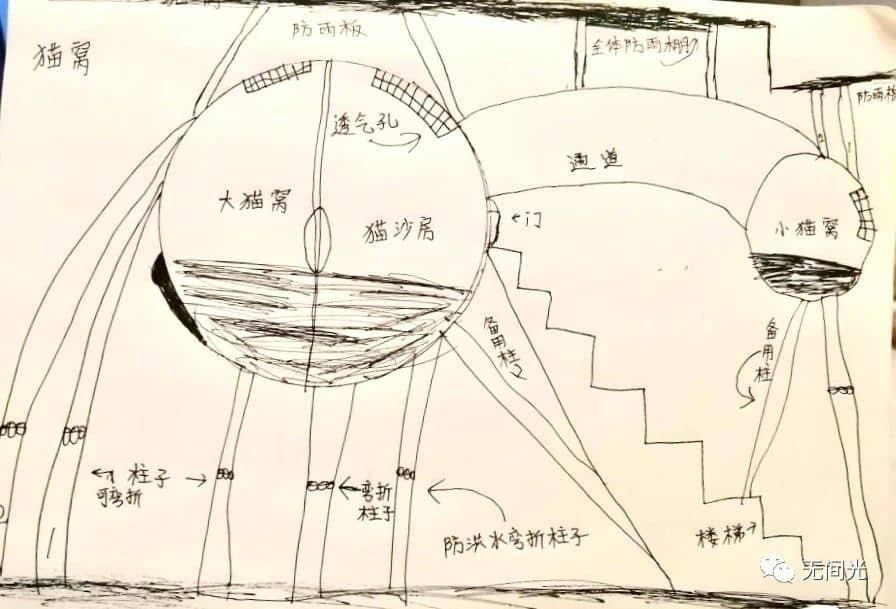 猫窝
防雨板
全体防雨棚
防雨板
透气孔
通道
大猫窝
猫沙房
门
小猫窝
备用柱
备用柱
柱子
可弯折
弯折
柱子
防洪水弯折柱子
楼梯
无间光